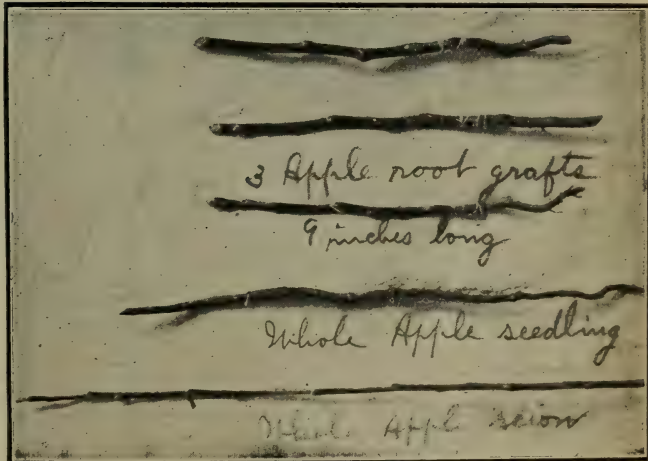 3 Apple root grafts
9 inches long
Whole Apple seedling
Whole Appl scion